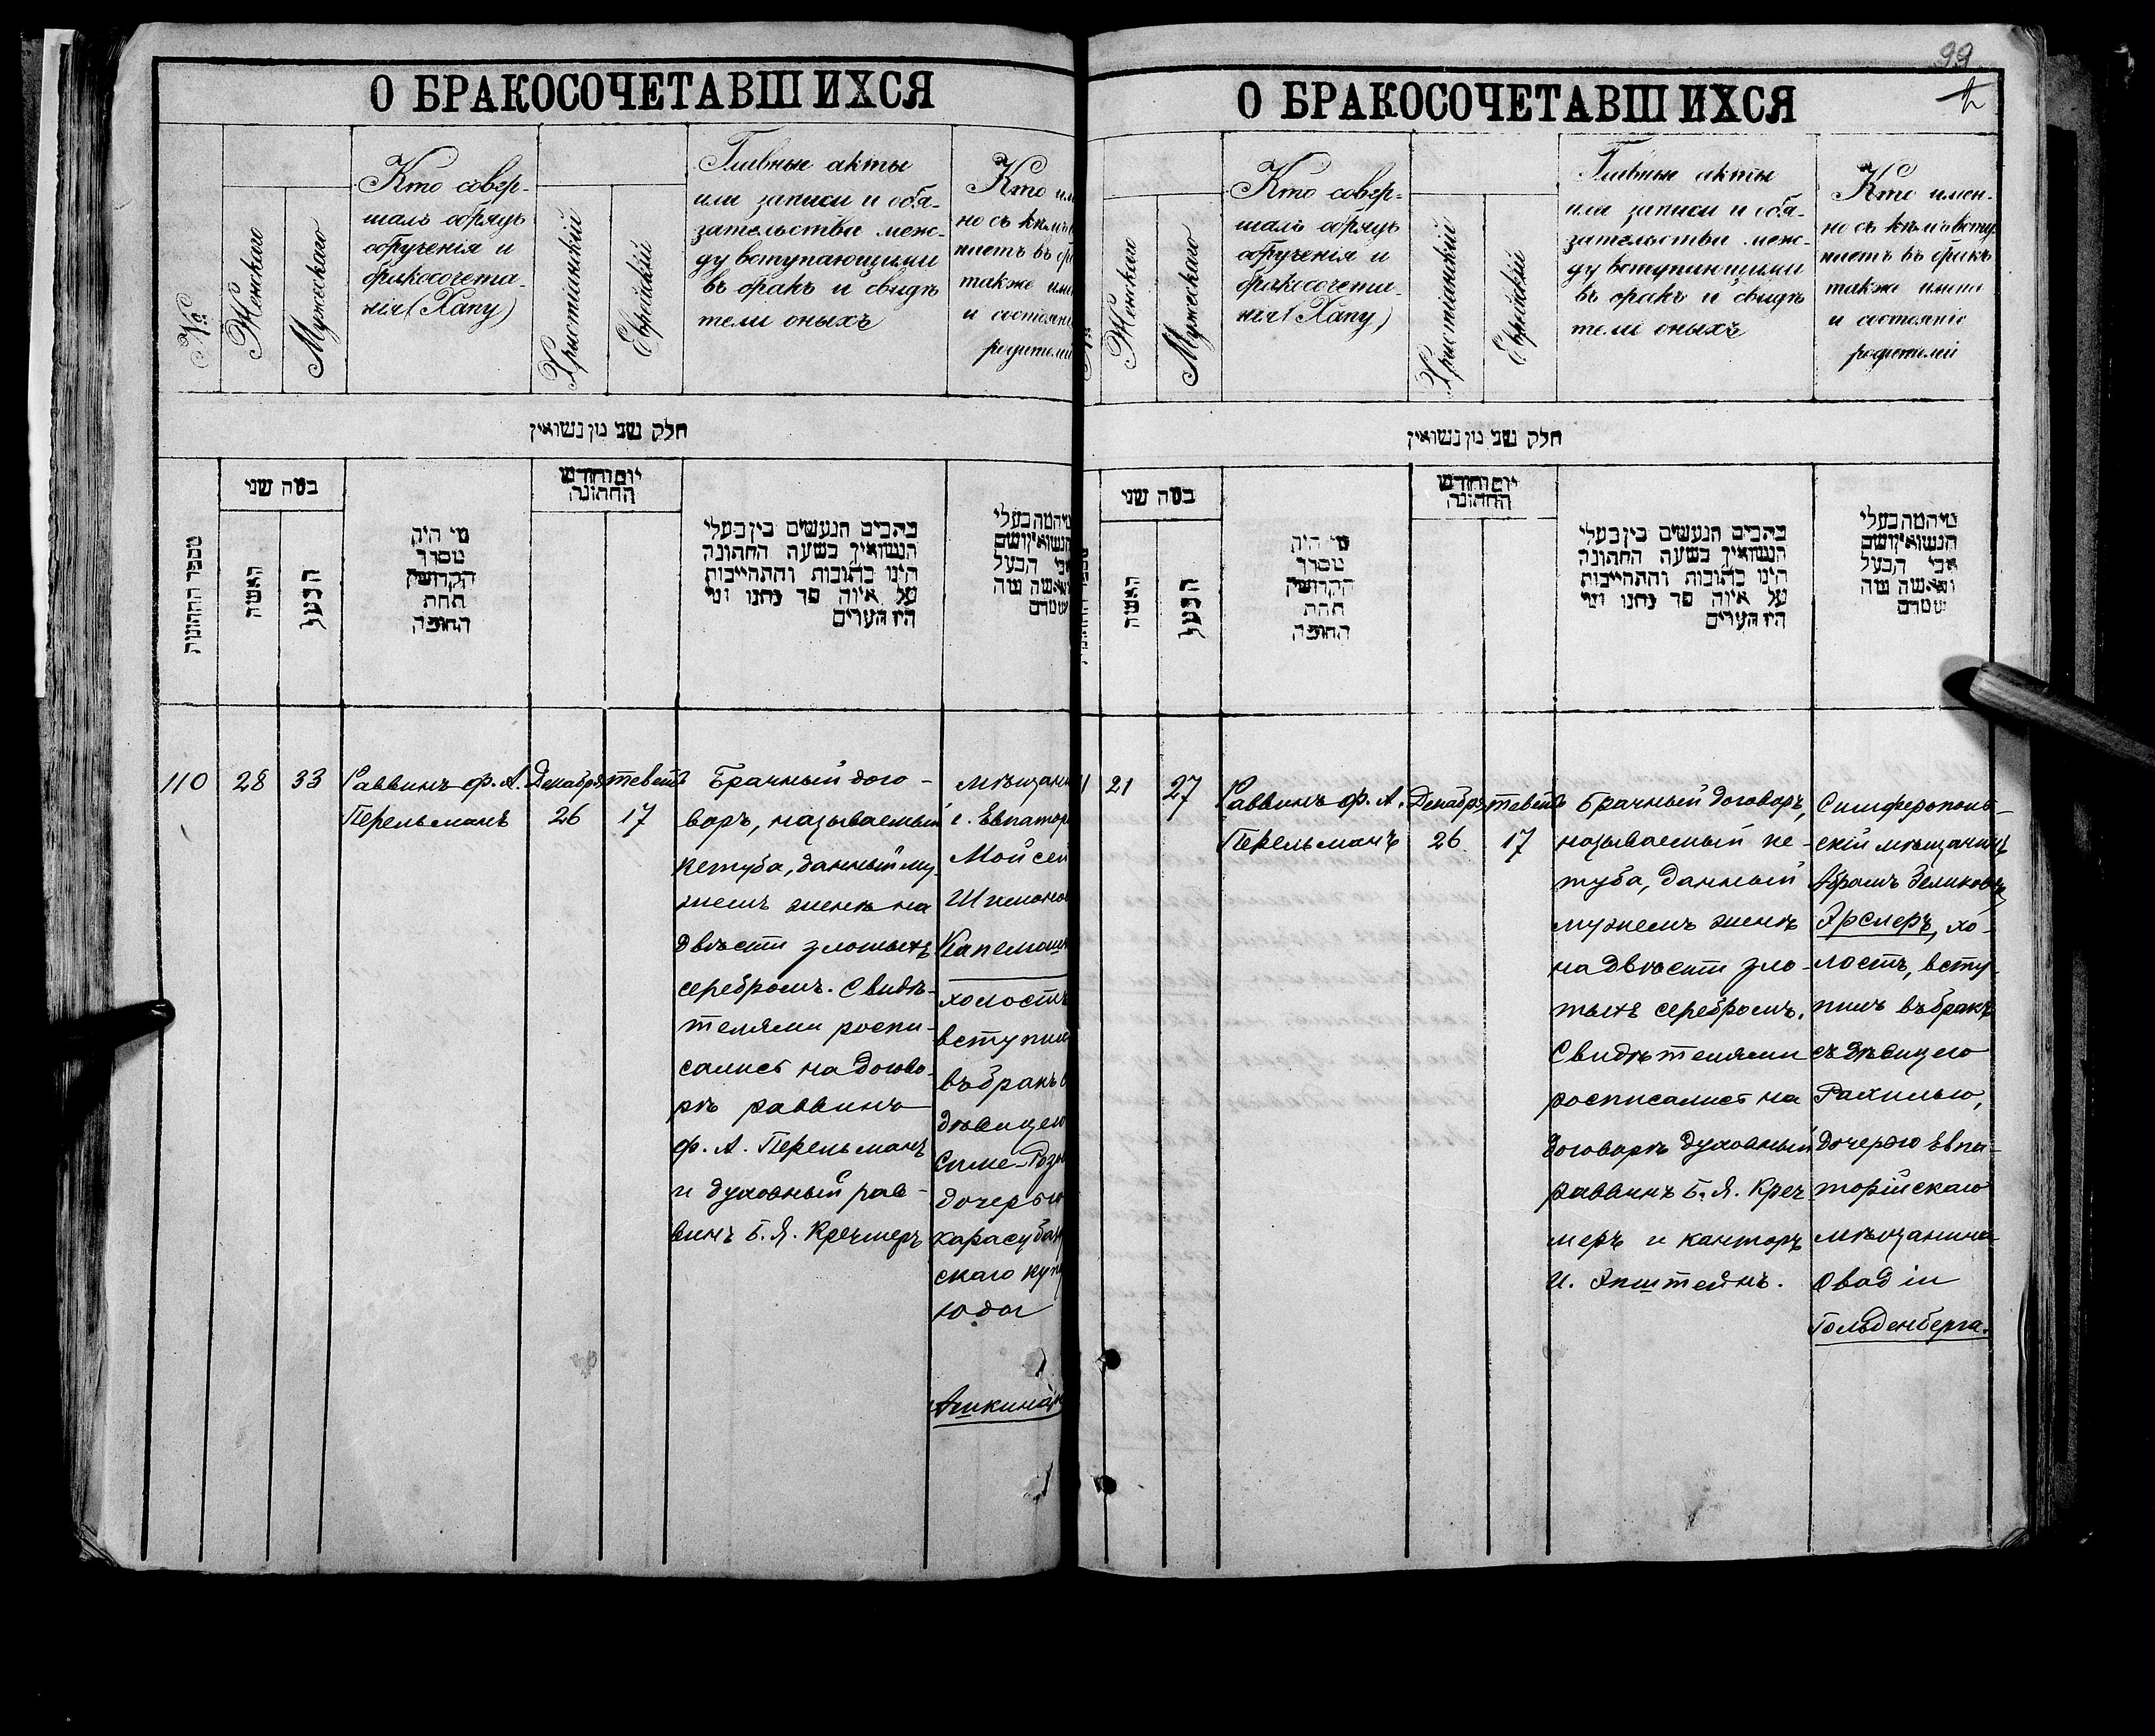 О БРАКОСОЧЕТАВШИХСЯ
№
Женскаго
Мужескаго
Кто совер-
шалъ обрядъ
обрученія и
бракосочета-
нія (Хапу)
Христіанскій
Еврейскій
Главные акты
или записи и обя-
зательства меж-
ду вступающими
въ бракъ и свидѣ
тели оныхъ
Кто им
но съ кѣмъ в
паетъ въ бр
также име
и состояні
родителей
חלק שני מן נשואין
מספר החתונות
במה שני
האשה
הבעל
מי היה
מסדר
הקדושין
תחת
החופה
יום וחודש
החתונה
כתבים הנעשים בין בעלי
הנשואין בשעה החתונה
הינו כתובות והתחייבות
על איזה סך נתנו ומי
היו העדים
מיהמה בעלי
הנשואין ושם
אבי הבעל
והאשה מה
שמדם
110
28
33
Раввинъ ф. А.
Перельманъ
Декабря
26
тевета
17
Брачный дого-
воръ, называемый
кетуба, данный му-
жемъ женѣ на
двѣсти злотыхъ
серебромъ. Свидѣ-
телями роспи-
сались на догово-
рѣ раввинъ
ф. А. Перельманъ
и духовный рав-
винъ Б. Я. Кречмеръ
мѣщани
г. Евпатор
Мойсей
Шимоно
Капелюш
холостъ
вступил
въ бракъ с
дѣвицею
Симе-Роз
дочерью
карасубаз
скаго куп
Юда
Ашкинази
О БРАКОСОЧЕТАВШИХСЯ
99
Женскаго
Мужескаго
Кто совер-
шалъ обрядъ
обрученія и
бракосочета-
нія (Хапу)
Христіанскій
Еврейскій
Главные акты
или записи и обя-
зательства меж-
ду вступающими
въ бракъ и свидѣ
тели оныхъ
Кто имен-
но съ кѣмъ всту
паетъ въ бракъ
также имена
и состояніе
родителей
חלק שני מן נשואין
במה שני
האשה
הבעל
מי היה
מסדר
הקדושין
תחת
החופה
יום וחודש
החתונה
כתבים הנעשים בין בעלי
הנשואין בשעה החתונה
הינו כתובות והתחייבות
על איזה סך נתנו ומי
היו העדים
מיהמה בעלי
הנשואין ושם
אבי הבעל
והאשה מה
שמדם
21
27
Раввинъ ф. А.
Перельманъ
Декабря
26
тевета
17
Брачный договоръ,
называемый ке-
туба, данный
мужемъ женѣ
на двѣсти зло-
тыхъ серебромъ.
Свидѣтелями
росписались на
договорѣ духовный
раввинъ Б. Я. Креч-
меръ и канторъ
И. Эпштейнъ.
Симферополь-
скій мѣщанинъ
Абрамъ Зеликовъ
Эрслеръ, хо-
лостъ, всту-
пилъ въ бракъ
съ дѣвицею
Рахилью,
дочерью Евпа-
торійскаго
мѣщанина
Овадіи
Гольденберга.